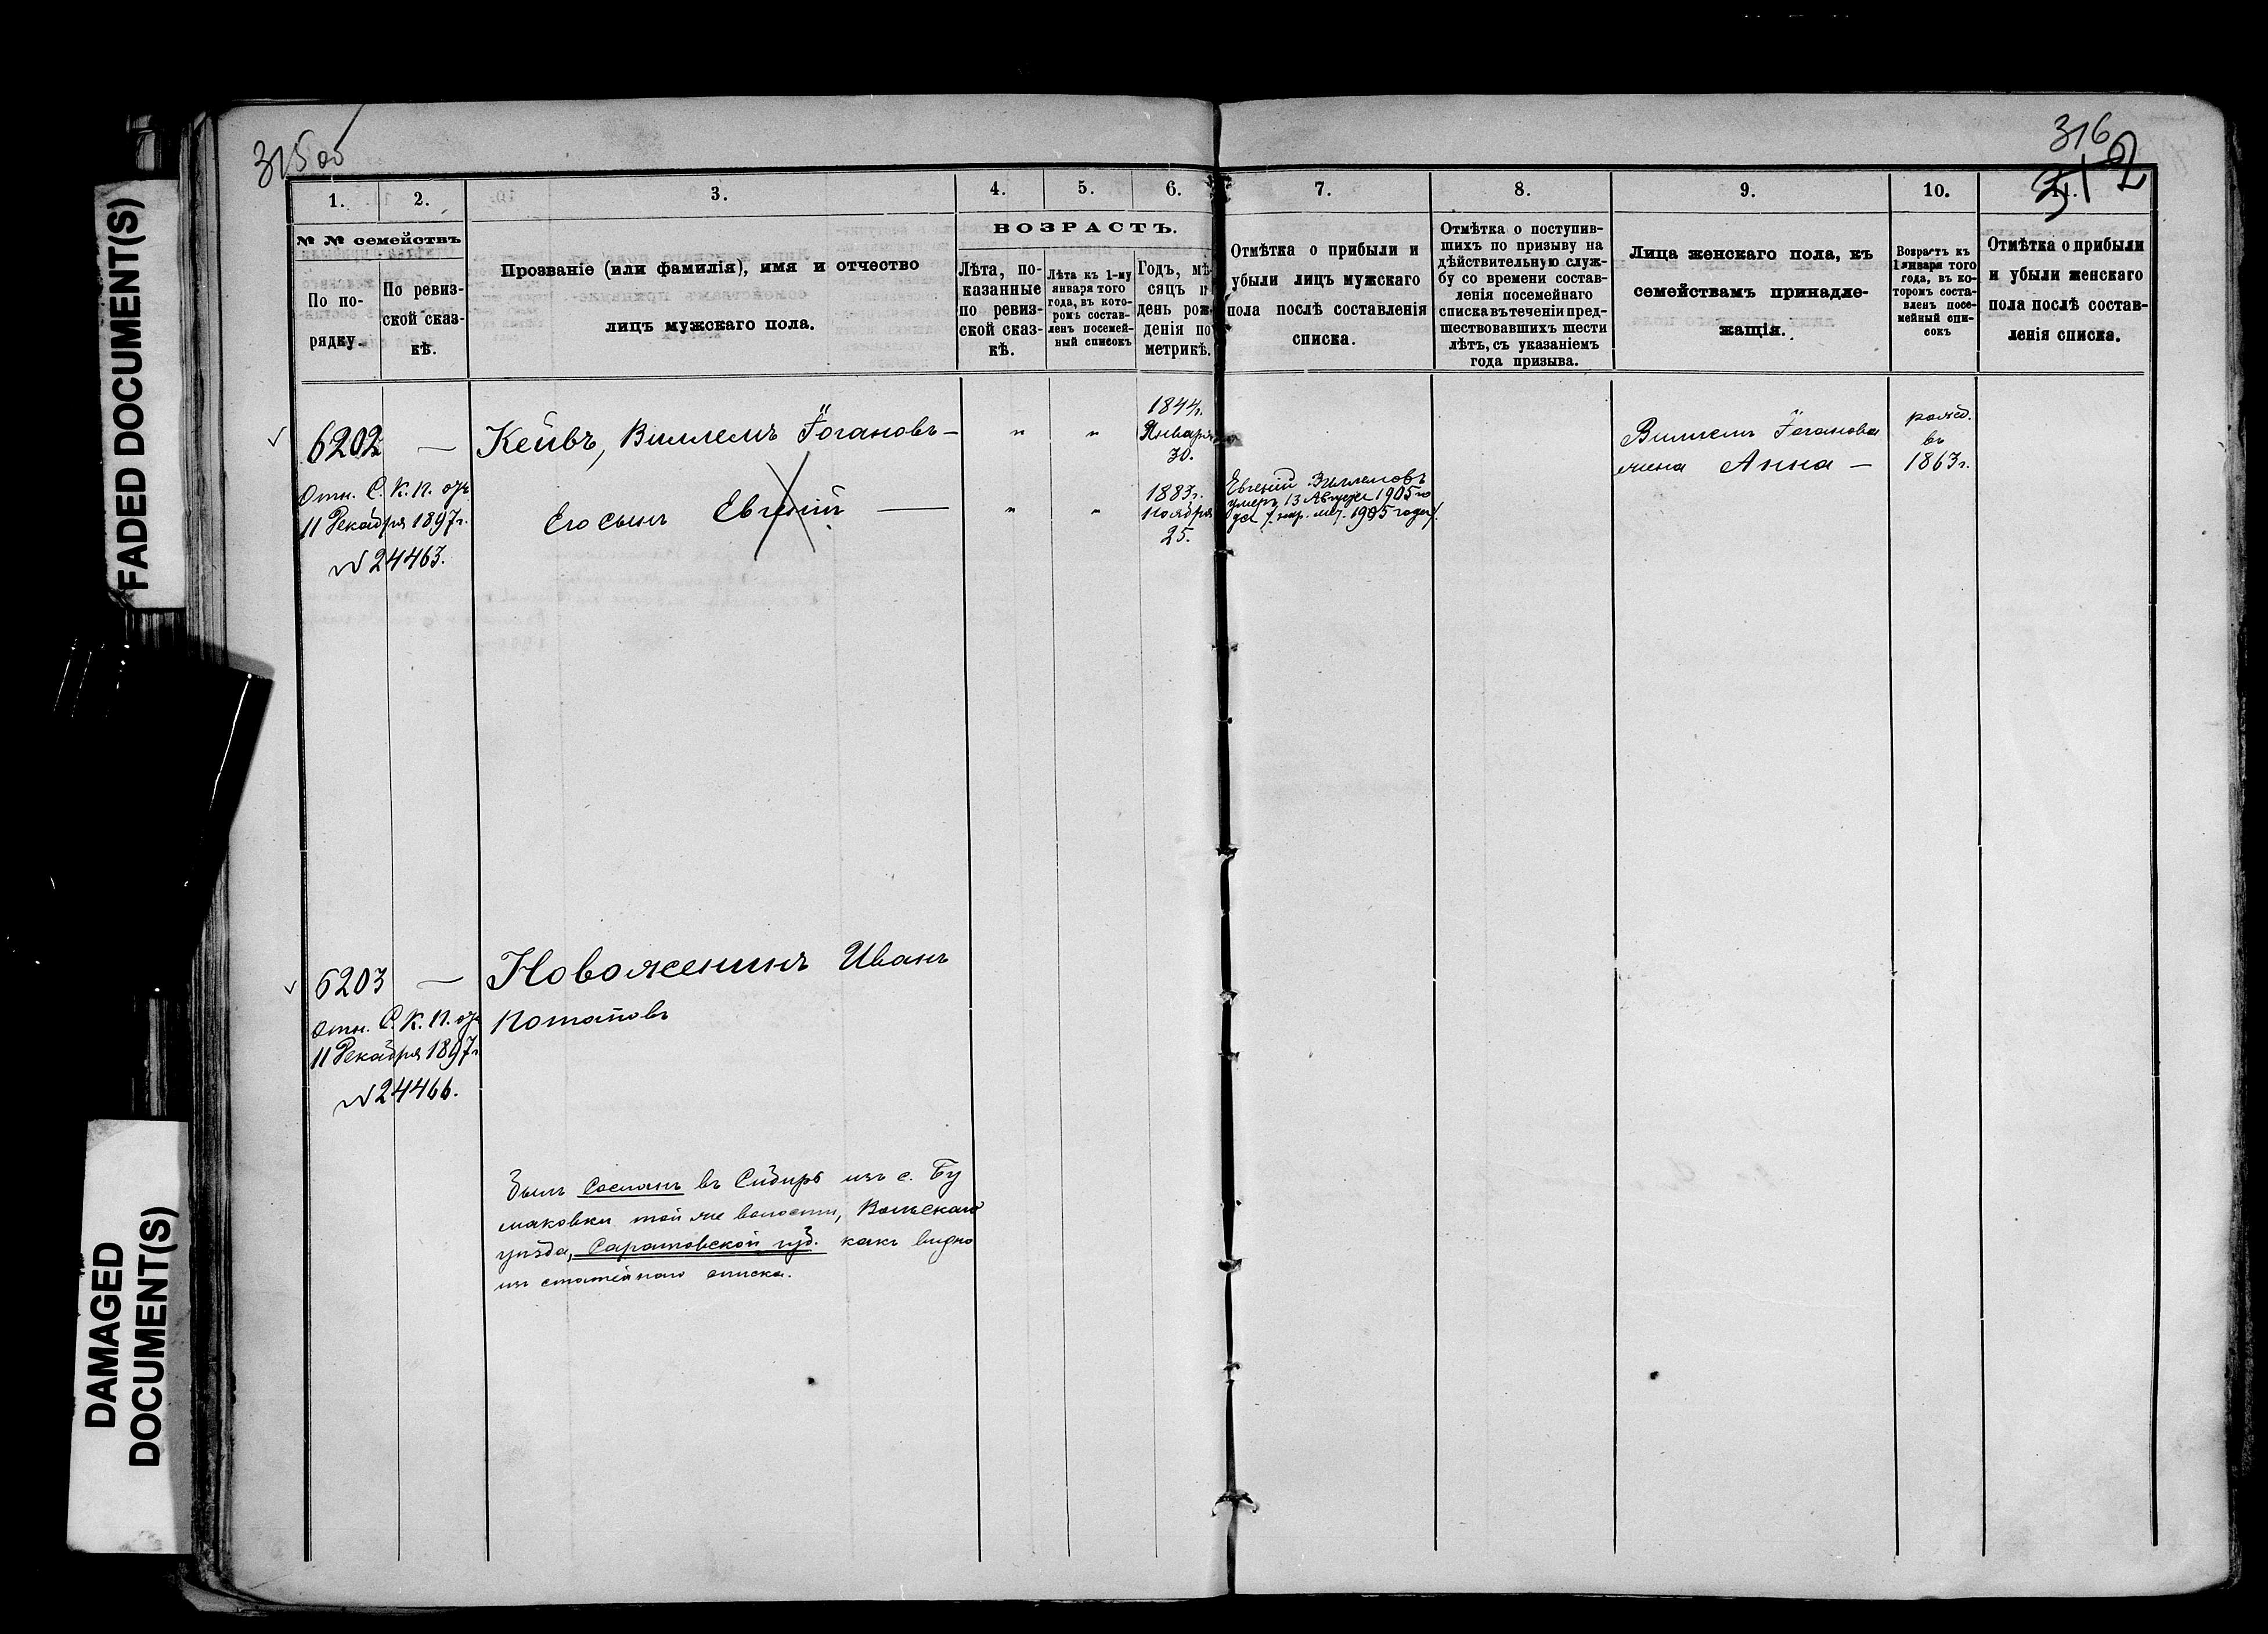 FADED DOCUMENT(S)
DAMAGED
DOCUMENT(S)
315 об
316
312
1.
2.
3.
4.
5.
6.
7.
8.
9.
10.
№ № семействъ
По по-
рядку.
По ревиз-
ской сказ-
кѣ.
Прозваніе (или фамилія), имя и отчество
лицъ мужскаго пола.
ВОЗРАСТЪ.
Лѣта, по-
казанные
по ревиз-
ской сказ-
кѣ.
Лѣта къ 1-му
января того
года, въ кото-
ромъ состав-
ленъ посемей-
ный списокъ
Годъ, мѣ-
сяцъ и
день рож-
денія по
метрикѣ.
Отмѣтка о прибыли и
убыли лицъ мужскаго
пола послѣ составленія
списка.
Отмѣтка о поступив-
шихъ по призыву на
дѣйствительную служ-
бу со времени состав-
ленія посемейнаго
списка въ теченіи пред-
шествовавшихъ шести
лѣтъ, съ указаніемъ
года призыва.
Лица женскаго пола, къ
семействамъ принадле-
жащія.
Возрастъ къ
1 января того
года, въ ко-
торомъ соста-
вленъ посе-
мейный спи-
сокъ
Отмѣтка о прибыли
и убыли женскаго
пола послѣ состав-
ленія списка.
6202 —
Отн. С. К. П. отъ
11 Декабря 1897 г.
№ 24463.
Кейвъ, Виллемъ Iогановъ —
" "
1844 г.
Января
30.
Его сынъ Евгеній —
" "
1883 г.
Ноября
25.
Евгеній Виллемовъ
умеръ 13 Августа 1905 го
да /. 1905 года/.
Виллема Iоганова
жена Анна —
рожд.
въ
1863 г.
6203 —
Отн. С. К. П. отъ
11 Декабря 1897 г.
№ 24466.
Новоженинъ Иванъ
Потаповъ
Былъ сосланъ въ Сибирь изъ с. Бу
маковки той же волости, Вольскаго
уѣзда, Саратовской губ. какъ видно
изъ статейнаго списка.